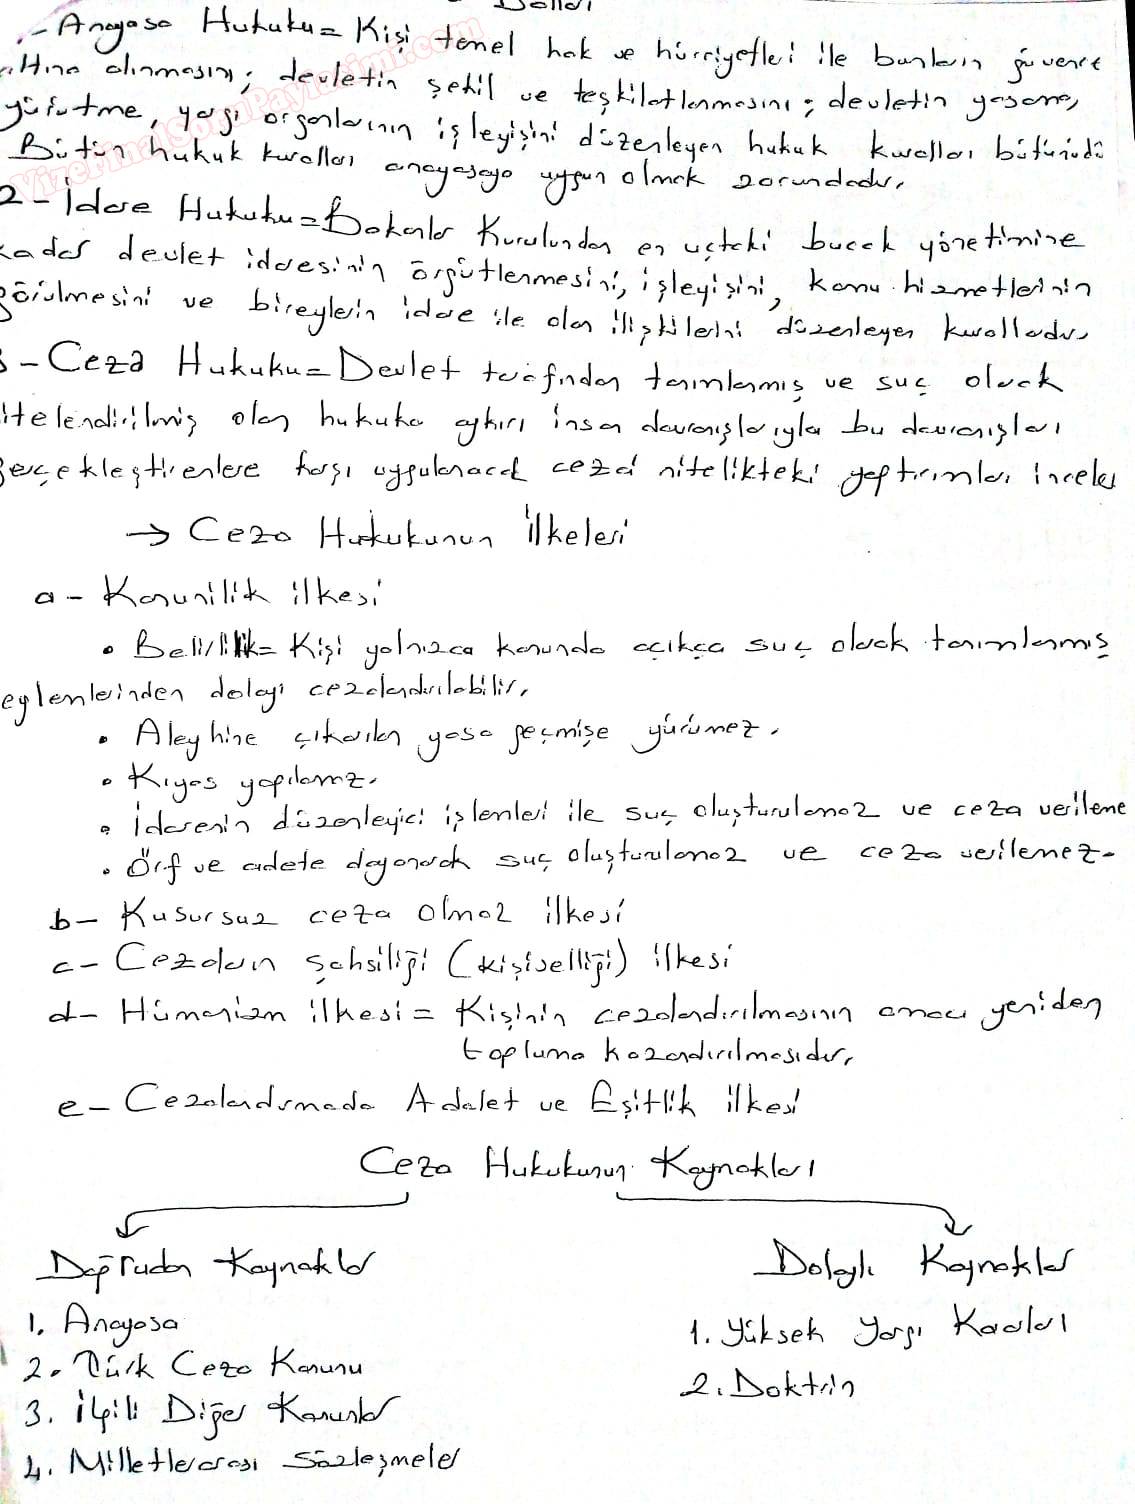 Dalları
1- Anayasa Hukuku= Kişi temel hak ve hürriyetleri ile bunların güvence
altına alınmasını; devletin şekil ve teşkilatlanmasını; devletin yasama,
yürütme, yargı organlarının işleyişini düzenleyen hukuk kuralları bütünüdü
Bütün hukuk kuralları anayasaya uygun olmak zorundadır.
2- İdare Hukuku= Bakanlar Kurulundan en uçtaki bucak yönetimine
kadar devlet idaresinin örgütlenmesini, işleyişini, kamu hizmetlerinin
görülmesini ve bireylerin idare ile olan ilişkilerini düzenleyen kurallardır.
3- Ceza Hukuku= Devlet tarafından tanımlanmış ve suç olarak
nitelendirilmiş olan hukuka aykırı insan davranışlarıyla bu davranışları
gerçekleştirenlere karşı uygulanacak cezai nitelikteki yaptırımları inceler
→ Ceza Hukukunun İlkeleri
a- Kanunilik ilkesi
• Belirlilik= Kişi yalnızca kanunda açıkça suç olarak tanımlanmış
eylemlerinden dolayı cezalandırılabilir.
• Aleyhine çıkarılan yasa geçmişe yürümez.
• Kıyas yapılamz.
• İdarenin düzenleyici işlemleri ile suç oluşturulamaz ve ceza verileme
• Örf ve adete dayanarak suç oluşturulamaz ve ceza verilemez.
b- Kusursuz ceza olmaz ilkesi
c- Cezaların şahsiliği (kişiselliği) ilkesi
d- Hümanizm ilkesi= Kişinin cezalandırılmasının amacı yeniden
topluma kazandırılmasıdır.
e- Cezalandırmada Adalet ve Eşitlik ilkesi
Ceza Hukukunun Kaynakları
Doğrudan Kaynaklar
1. Anayasa
2. Türk Ceza Kanunu
3. İlgili Diğer Kanunlar
4. Milletlerarası Sözleşmeler
Dolaylı Kaynaklar
1. Yüksek Yargı Kararları
2. Doktrin
VizeFinalSoruPaylasimi.com